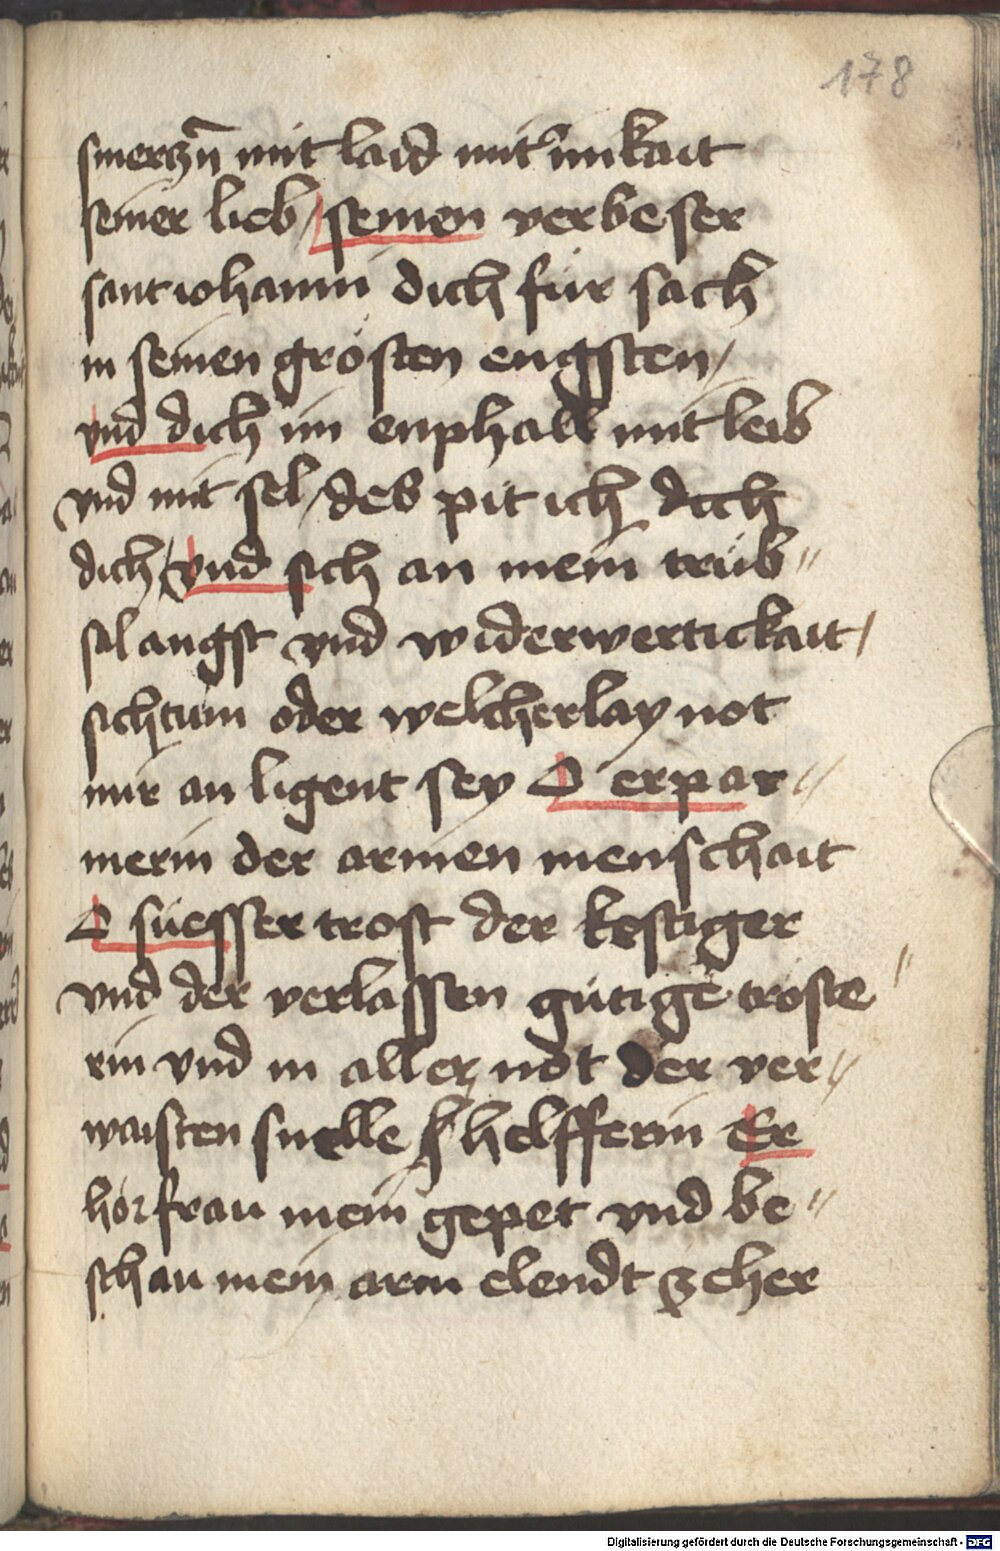 178
smerczn̄ mit laid mit inikait
seiner lieb / seinen verbeser
sant iohanni dich für sach
in seinen grösten engsten /
vnd dich im enphall mit leib
vnd mit sel / des pit ich dich
dich / vnd sich an mein trüb〃
sal angst vnd widerwertickait /
sichtum oder welcherlay not
mir an ligent sey O erpar〃
merin der armen menschait
O suesser trost der kestiger
vnd der verlassen gütige tröste〃
rin vnd in aller not der ver〃
waisten snelle helfferin Er
hör frau mein gepet vnd be〃
schau mein arm elendt zeher
Digitalisierung gefördert durch die Deutsche Forschungsgemeinschaft - DFG